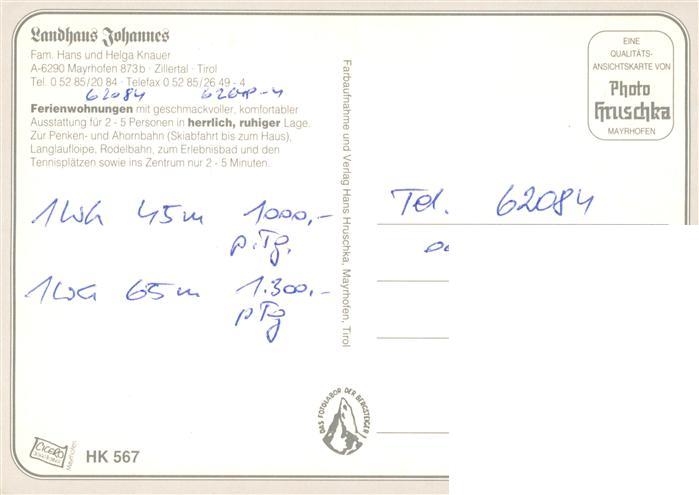 Landhaus Johannes
Fam. Hans und Helga Knauer
A-6290 Mayrhofen 873b · Zillertal · Tirol
Tel. 0 52 85/20 84 · Telefax 0 52 85/26 49 - 4
62084
Ferienwohnungen mit geschmackvoller, komfortabler
Ausstattung für 2 - 5 Personen in herrlich, ruhiger Lage.
Zur Penken- und Ahornbahn (Skiabfahrt bis zum Haus),
Langlaufloipe, Rodelbahn, zum Erlebnisbad und den
Tennisplätzen sowie ins Zentrum nur 2 - 5 Minuten.
1 Wh 45m 1000,-
p. Tg.
1 Wh 65m 1.300,-
p Tg
HK 567
CICERO
Mayrhofen
Farbaufnahme und Verlag Hans Hruschka, Mayrhofen, Tirol
DAS FOTOLABOR DER BERGSTEIGER
EINE
QUALITÄTS-
ANSICHTSKARTE VON
Photo
Hruschka
MAYRHOFEN
Tel. 62084